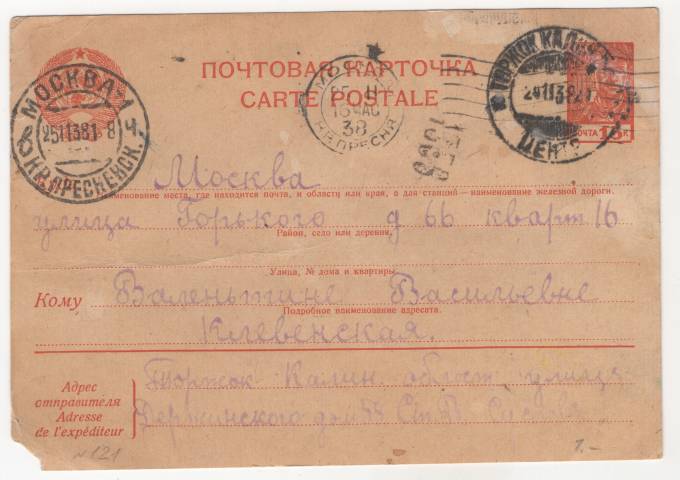 ПОЧТОВАЯ КАРТОЧКА
CARTE POSTALE
МОСКВА-1
25 11 38 1 8 Ч
КР.ПРЕСНЕНСК.
МОСКВА
КР.ПРЕСНЯ
38
ТОРЖОК КАЛИН
ЦЕНТР
ПОЧТА
Москва
Наименование места, где находится почта, и области или края, а для станций – наименование железной дороги.
улица Горького д 66 кварт 16
Район, село или деревня.
Улица, № дома и квартиры.
Кому Валеньтине Васильевне
Подробное наименование адресата.
Клевенская.
Адрес
отправителя
Adresse
de l'expéditeur
Торжок Калин. област улица
дом
N 121
1.–